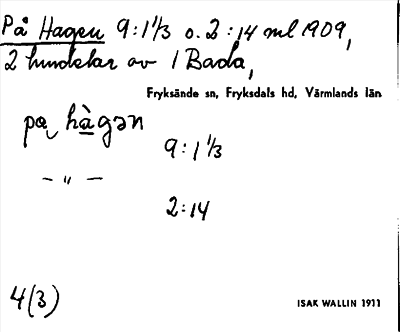 På Hagen 9:1 1/3 o. 2:14 ml 1909,
2 hundelar av 1 Bada,
Fryksände sn, Fryksdals hd, Värmlands län
pa hàgən
9:1 1/3
— „ —
2:14
4(3)
ISAK WALLIN 1911